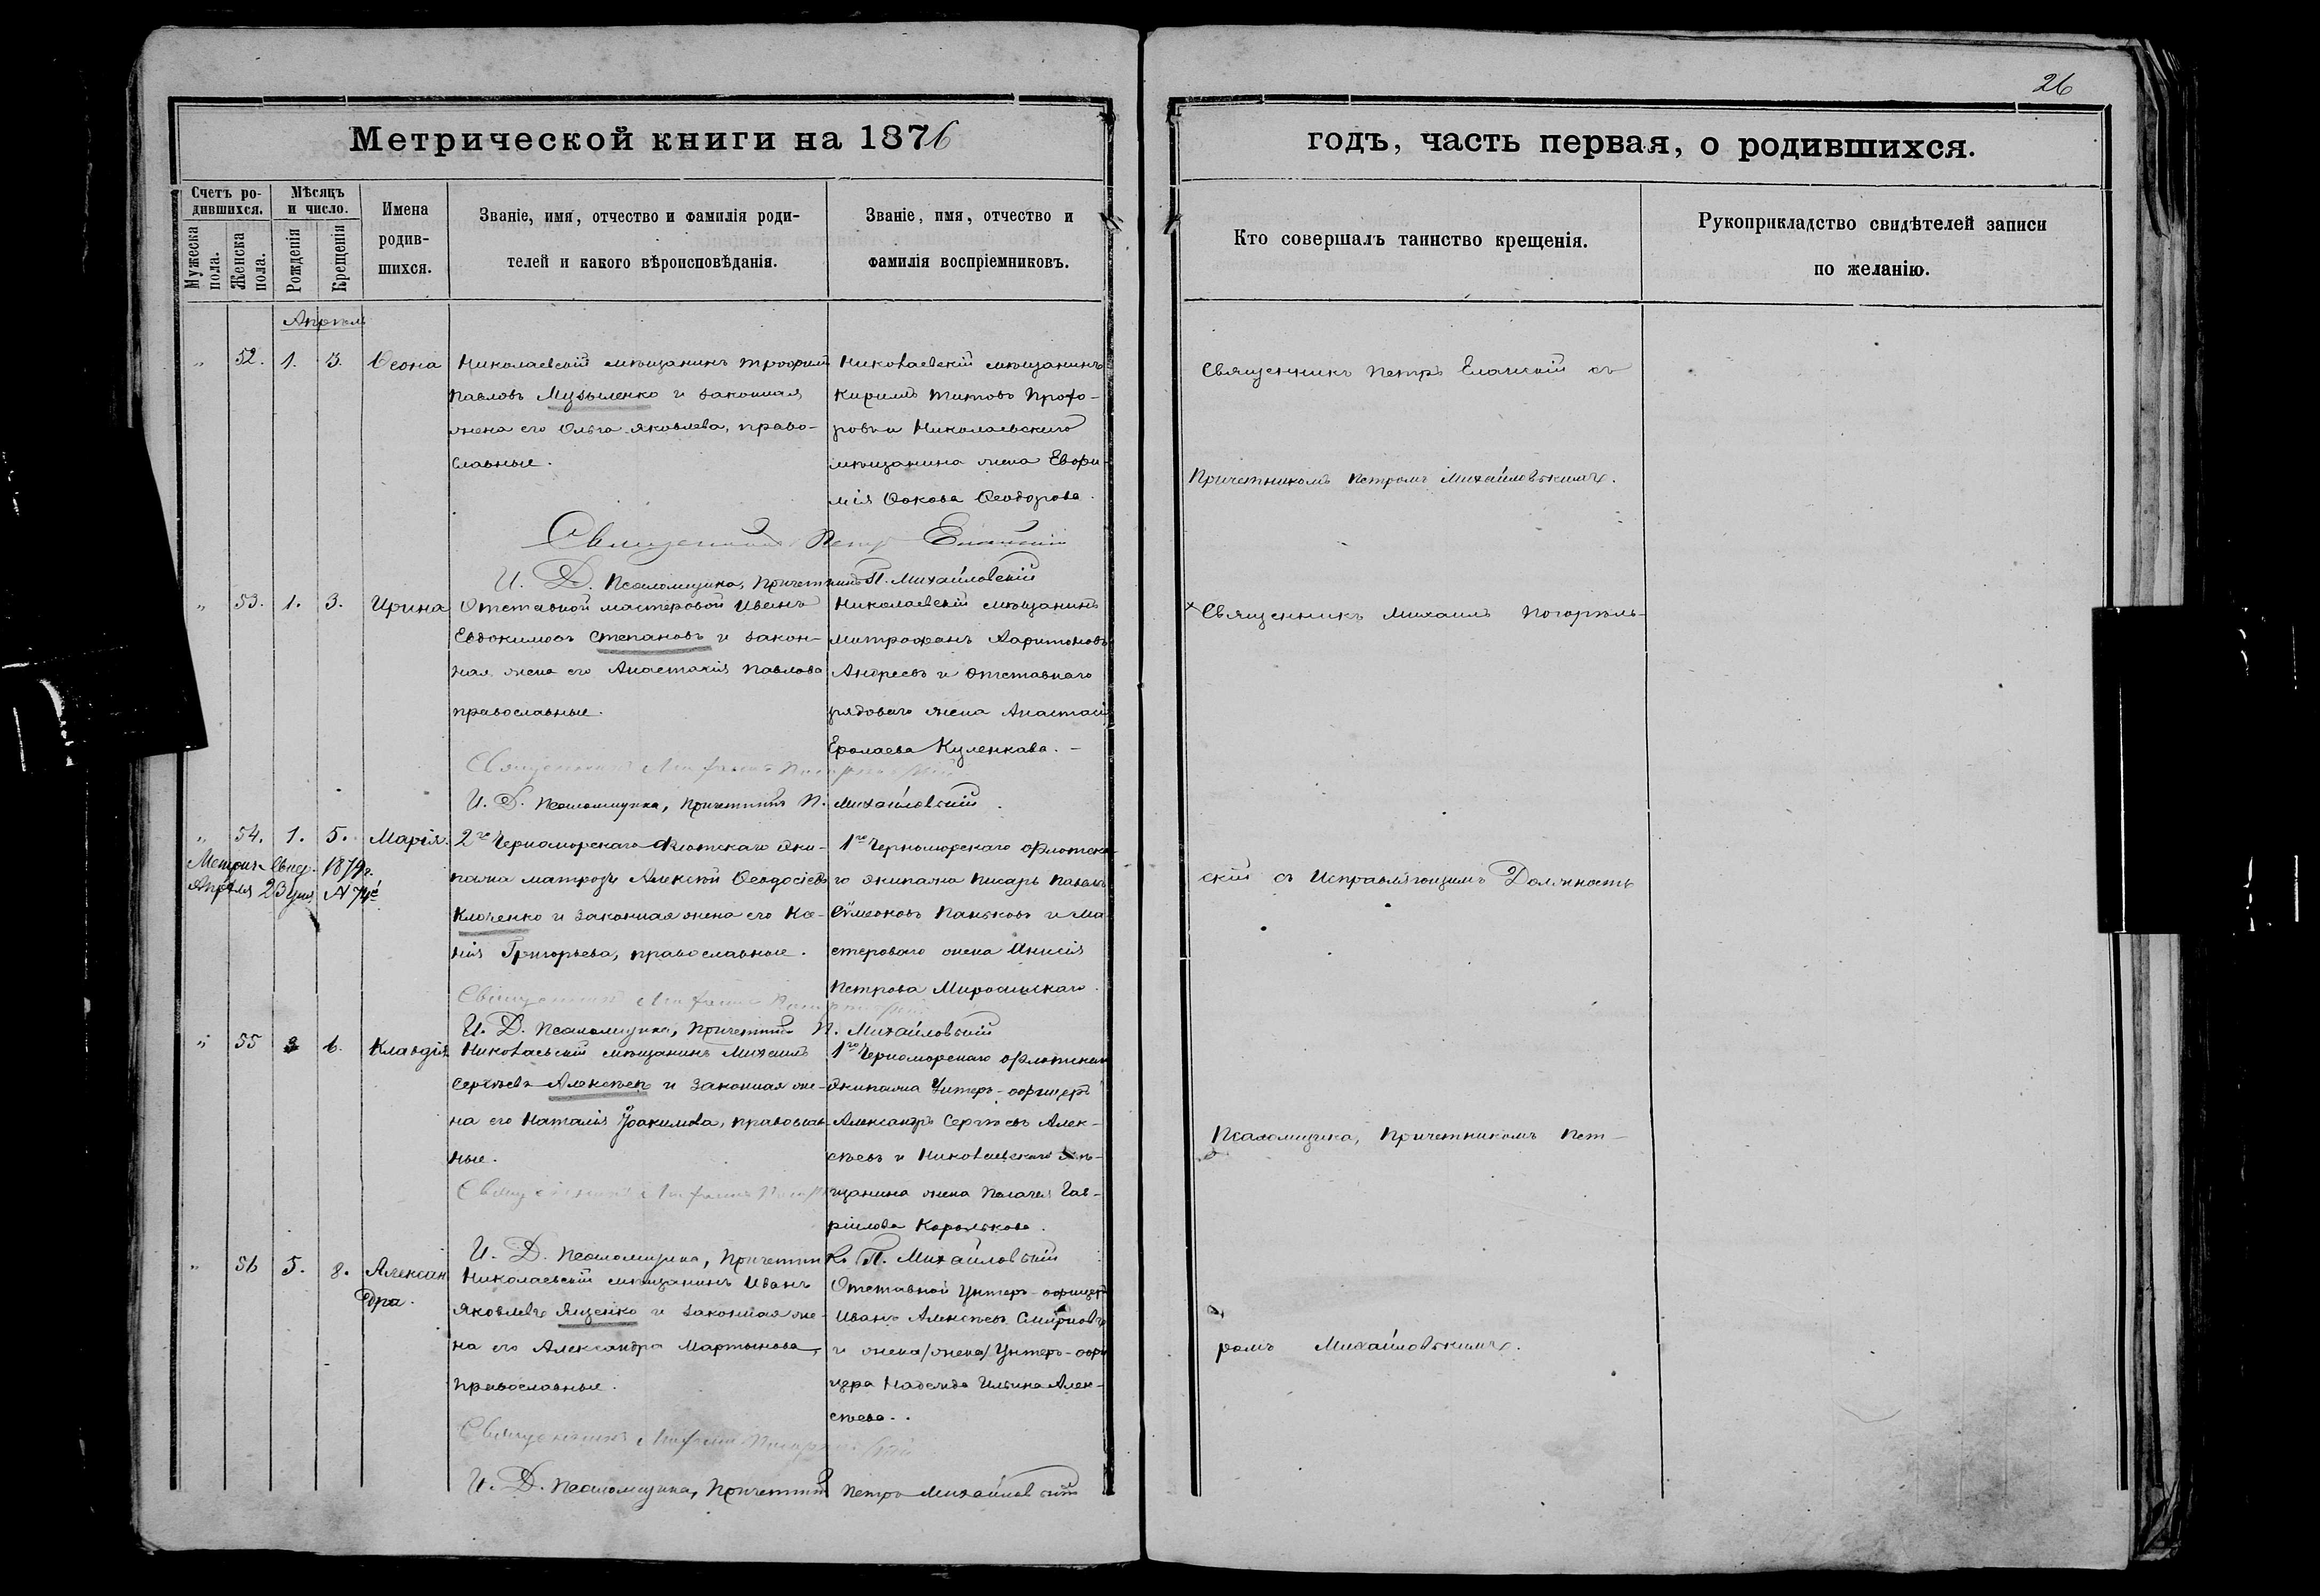 26
Метрической книги на 1876
годъ, часть первая, о родившихся.
Счетъ ро-
дившихся.
Мужеска
пола.
Женска
пола.
Мѣсяцъ
и число.
Рожденія
Крещенія
Имена
родив-
шихся.
Званіе, имя, отчество и фамилія роди-
телей и какого вѣроисповѣданія.
Званіе, имя, отчество и
фамилія воспріемниковъ.
Кто совершалъ таинство крещенія.
Рукоприкладство свидѣтелей записи
по желанію.
Апрѣль
„ 52. 1. 3. Ѳеона
Николаевскій мѣщанинъ Трофимъ
Павловъ Музыленко и законная
жена его Ольга Яковлева, право-
славные.
Николаевскій мѣщанинъ
Кириллъ Титовъ
и Николаевскаго
мѣщанина жена Евфи-
мія Ѳеодорова.
Священникъ Петръ Еланскій съ
Причетникомъ Петромъ Михайловскимъ.
Священникъ Петръ Еланскій
И. Д. Псаломщика, Причетникъ П. Михайловскій
„ 53. 1. 3. Ирина
Отставной мастеровой Иванъ
Евдокимовъ Степановъ и закон-
ная жена его Анастасія Павлова
православные.
Николаевскій мѣщанинъ
Митрофанъ Харитоновъ
Андреевъ и отставнаго
рядоваго жена Анастасі
Ермолаева Куленкова. –
Священникъ Михаилъ Погорѣль-
Священникъ Михаилъ Погорѣльскій
И. Д. Псаломщика, Причетникъ П. Михайловскій.
„ 54. 1. 5. Марія.
Метрич. свид. 1879 г.
Апрѣля 23 дня № 74й
2го Черноморскаго Флотскаго Эки-
пажа матросъ Алексѣй Ѳеодосіевъ
Клоченко и законная жена его Ксе-
нія Григорьева, православные.
1го Черноморскаго флотска-
го экипажа писарь Павелъ
Сѵмеоновъ Паньковъ и ма-
стероваго жена
Петрова
скій съ Исправляющимъ Должность
Священникъ Михаилъ Погорѣльскій
И. Д. Псаломщика, Причетникъ П. Михайловскій
„ 55 3 6. Клавдія
Николаевскій мѣщанинъ Михаилъ
Сергѣевъ Алексѣевъ и законная же-
на его Наталія Іоакимова, православ-
ные.
1го Черноморскаго флотскаго
экипажа Унтеръ-офицеръ
Александръ Сергѣевъ Алек-
сѣевъ и Николаевскаго мѣ-
щанина жена Пелагея Гав-
ріилова Королькова.
Псаломщика, Причетникомъ Пет-
Священникъ Михаилъ
И. Д. Псаломщика, Причетникъ П. Михайловскій
„ 56 5. 8. Алексан
дра.
Николаевскій мѣщанинъ Иванъ
Яковлевъ Яценко и законная же-
на его Александра Мартынова,
православные.
Отставной Унтеръ-офицеръ
Иванъ Алексѣевъ Смирновъ
и жена /жена/ Унтеръ-офи
цера Надежда Ильина Алек-
сѣева.
ромъ Михайловскимъ.
Священникъ Михаилъ Погорѣльскій
И. Д. Псаломщика, Причетникъ Петръ Михайловскій